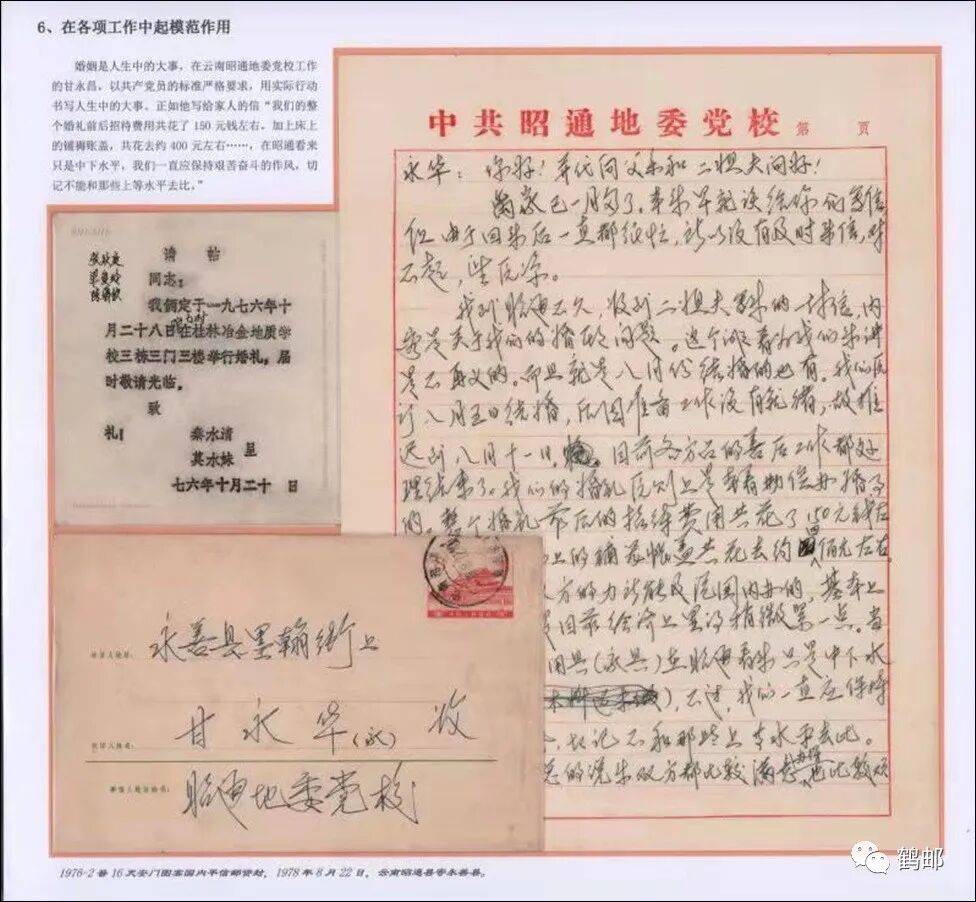 6、在各项工作中起模范作用
婚姻是人生中的大事，在云南昭通地委党校工作
的甘永昌，以共产党员的标准严格要求，用实际行动
书写人生中的大事。正如他写给家人的信“我们的整
个婚礼前后招待费用共花了150元钱左右。加上床上
的铺褥账盖，共花去约400元左右……，在昭通看来
只是中下水平，我们一直应保持艰苦奋斗的作风，切
记不能和那些上等水平去比。”
请 帖
同志：
我俩定于一九七六年十
月二十八日在桂林冶金地质学
校三栋三门三楼举行婚礼。届
时敬请光临。
致
礼！
秦水清
莫水妹
呈
七六年十月二十 日
中共昭通地委党校 第 页
永华：你好！并代问父亲和二姐夫问好！
离家已一月多了，本来早就该给你们写信
但由于回来后一直都很忙，所以没有及时来信，对
不起，望原谅。
我到昭通不久，收到二姐夫寄来的一封信，内
容是关于我们的婚姻问题。
而且就是八月份结婚的也有。我们原
订八月五日结婚，后因准备工作没有就绪，故推
迟到八月十一日。目前各方面的善后工作都处
理结束了。我们的婚礼原则上是本着勤俭办婚事
的。整个婚礼前后的招待费用共花了150元钱左
上的铺褥帐盖共花去约四佰元左右
方的力所能及范围内办的，基本上
目前经济上显得稍微紧一点。
用具（家具）在昭通看来只是中下水
），不过，我们一直应保持
切记不和那些上等水平去比。
总的说来双方都比较满意
永善县墨翰街上
收信人姓名：
甘永华（永） 收
昭通地委党校
1978-2普16天安门图案国内平信邮资封，1978年8月22日，云南昭通县寄永善县。
鹤邮